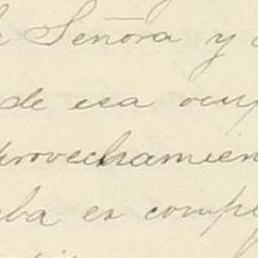 Señora y
de esa ocup
provechamien
ba es compe